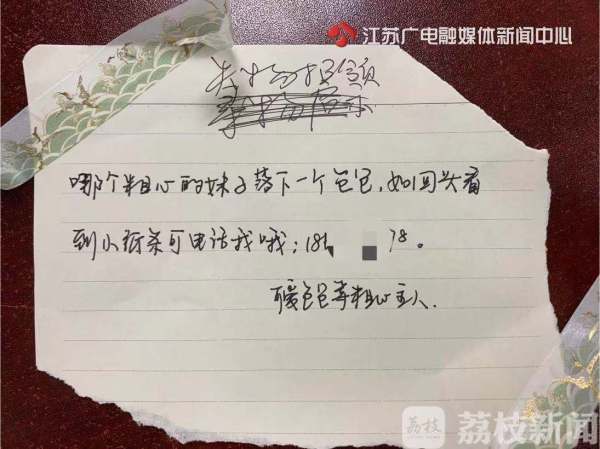 江苏广电融媒体新闻中心
失物招领
寻物启示
哪个粗心的妹子落下一个包包,如回头看
到小纸条可电话我哦:181 78。
暖爸爸寻粗心主人.
荔枝 荔枝新闻